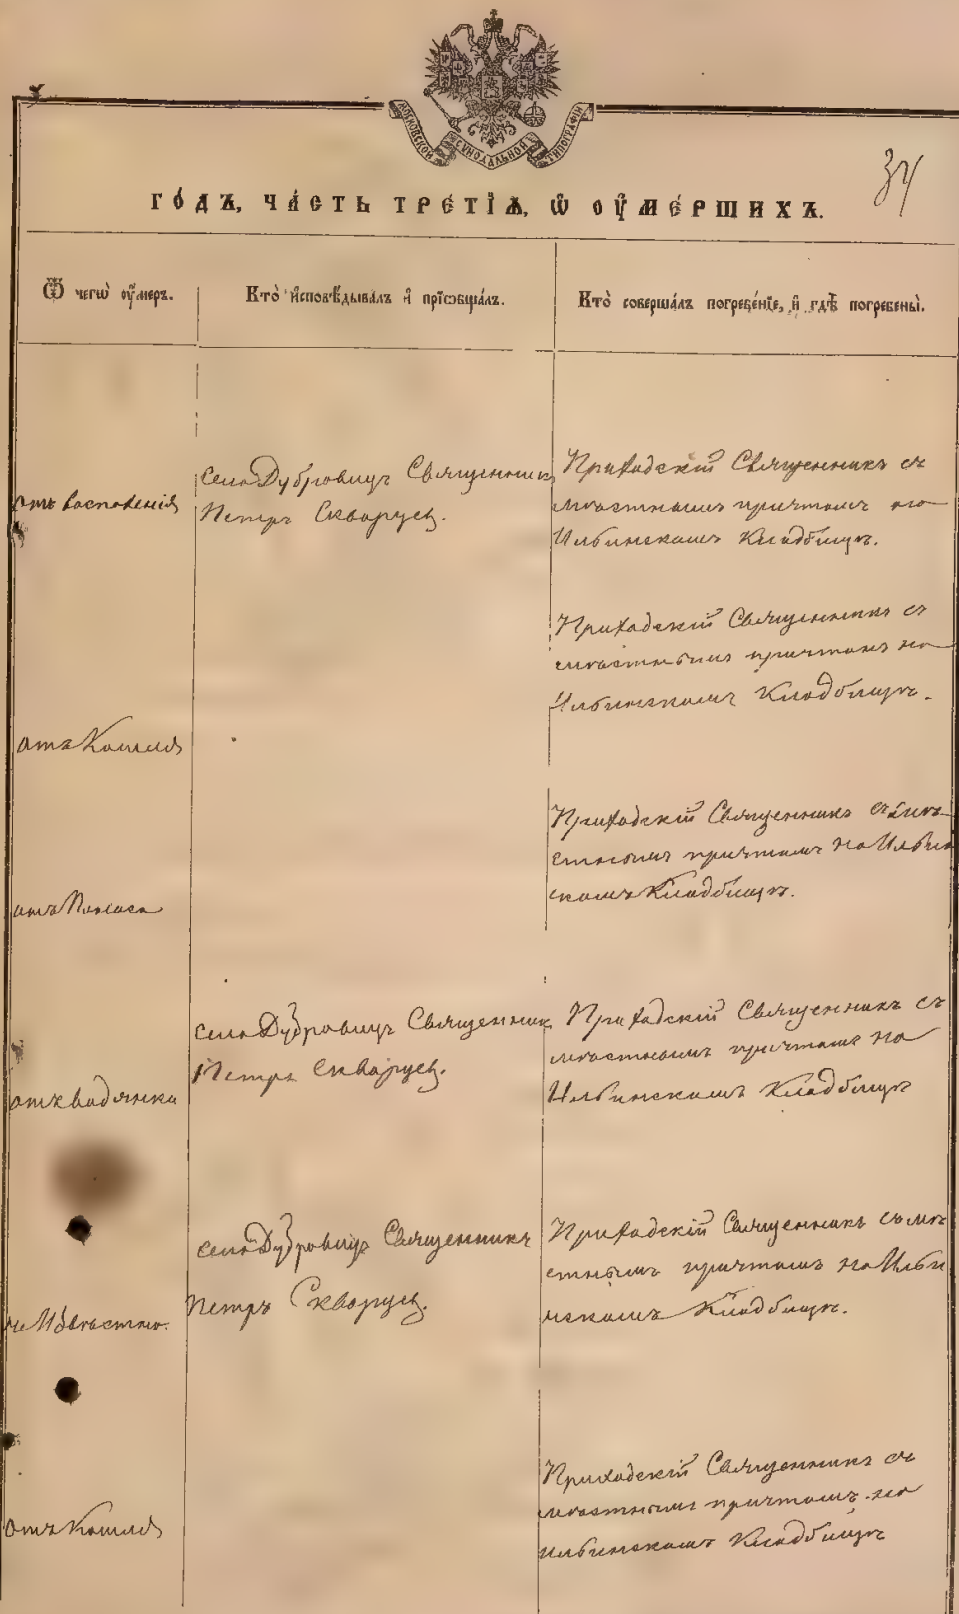 МОСКОВСКОЙ СѴНОДАЛЬНОЙ ТИПОГРАФІИ
34
ГО́ДЪ, ЧА́СТЬ ТРЕ́ТІѦ, Ѡ҆ ОУ҆МЕ́РШИХЪ.
Ѿ чегѡ̀ оу҆́меръ.
Кто̀ и҆сповѣ́дывалъ и҆ прїѡбща́лъ.
Кто̀ соверша́лъ погребе́нїе, и҆ гдѣ̀ погребены̀.
отъ воспаленія
села Дубровицъ Священникъ
Петръ Скворцев.
Приходскій Священникъ съ
мѣстнымъ причтомъ на
Ильинскомъ Кладбищѣ.
отъ Кашля
Приходскій Священникъ съ
мѣстнымъ причтомъ на
Ильинскомъ Кладбищѣ.
отъ Поноса
Приходскій Священникъ съ мѣ-
стнымъ причтомъ на Ильин
скомъ Кладбищѣ.
отъ водянки
села Дубровицъ Священник
Петръ Скворцев.
Приходскій Священникъ съ
мѣстнымъ причтомъ на
Ильинскомъ Кладбищѣ
неизвѣстно.
села Дубровицъ Священникъ
Петръ Скворцев.
Приходскій Священникъ съ мѣ
стнымъ причтомъ на Ильи
нскомъ Кладбищѣ.
отъ Кашля
Приходскій Священникъ съ
мѣстнымъ причтомъ на
Ильинскомъ Кладбищѣ